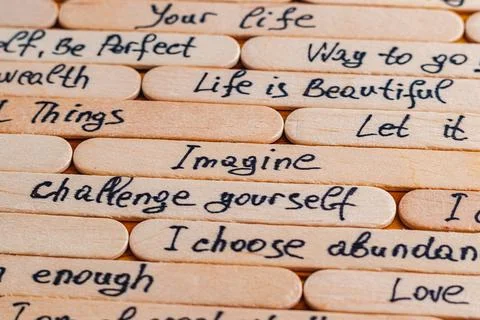 Your life
elf, Be Perfect Way to go
wealth Life is Beautiful
Things Let it
Imagine
Challenge yourself I
I choose abundan
enough Love